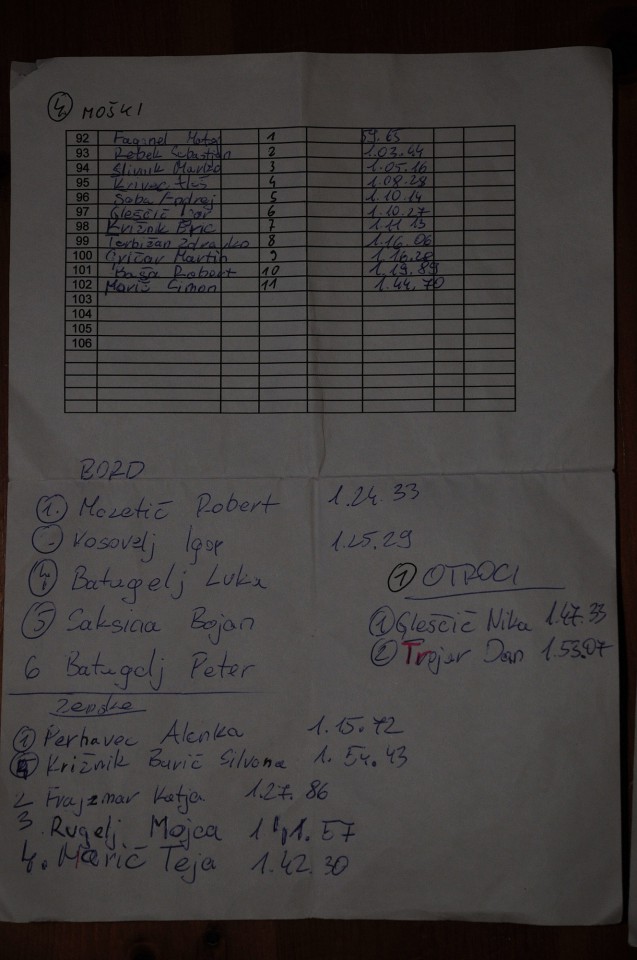 4 MOŠKI
92 Faganel Matej 1 59.65
93 Rebek Sebastian 2 1.03.44
94 Slivnik Marko 3 1.05.16
95 Krivec 4 1.08.28
96 Soba Andrej 5 1.10.14
97 Gleščič 6 1.10.27
98 Križnik 7 1.11.13
99 Terbižan Zdravko 8 1.16.06
100 Gričar Martin 9 1.16.28
101 Robert 10 1.19.89
102 Marič Simon 11 1.44.70
103
104
105
106
BORD
1. Mozetič Robert 1.24.33
Kosovelj Igor 1.25.29
4 Batagelj Luka
5 Saksida Bojan
6 Batagelj Peter
1 OTROCI
1 Gleščič Nika 1.47.33
2 Trojer Dan 1.53.07
Ženske
1 Perhavec Alenka 1.15.72
Križnik Burič Silvana 1.54.43
2 Katja 1.27.86
3. Rugelj Mojca
4. Marič Teja 1.42.30